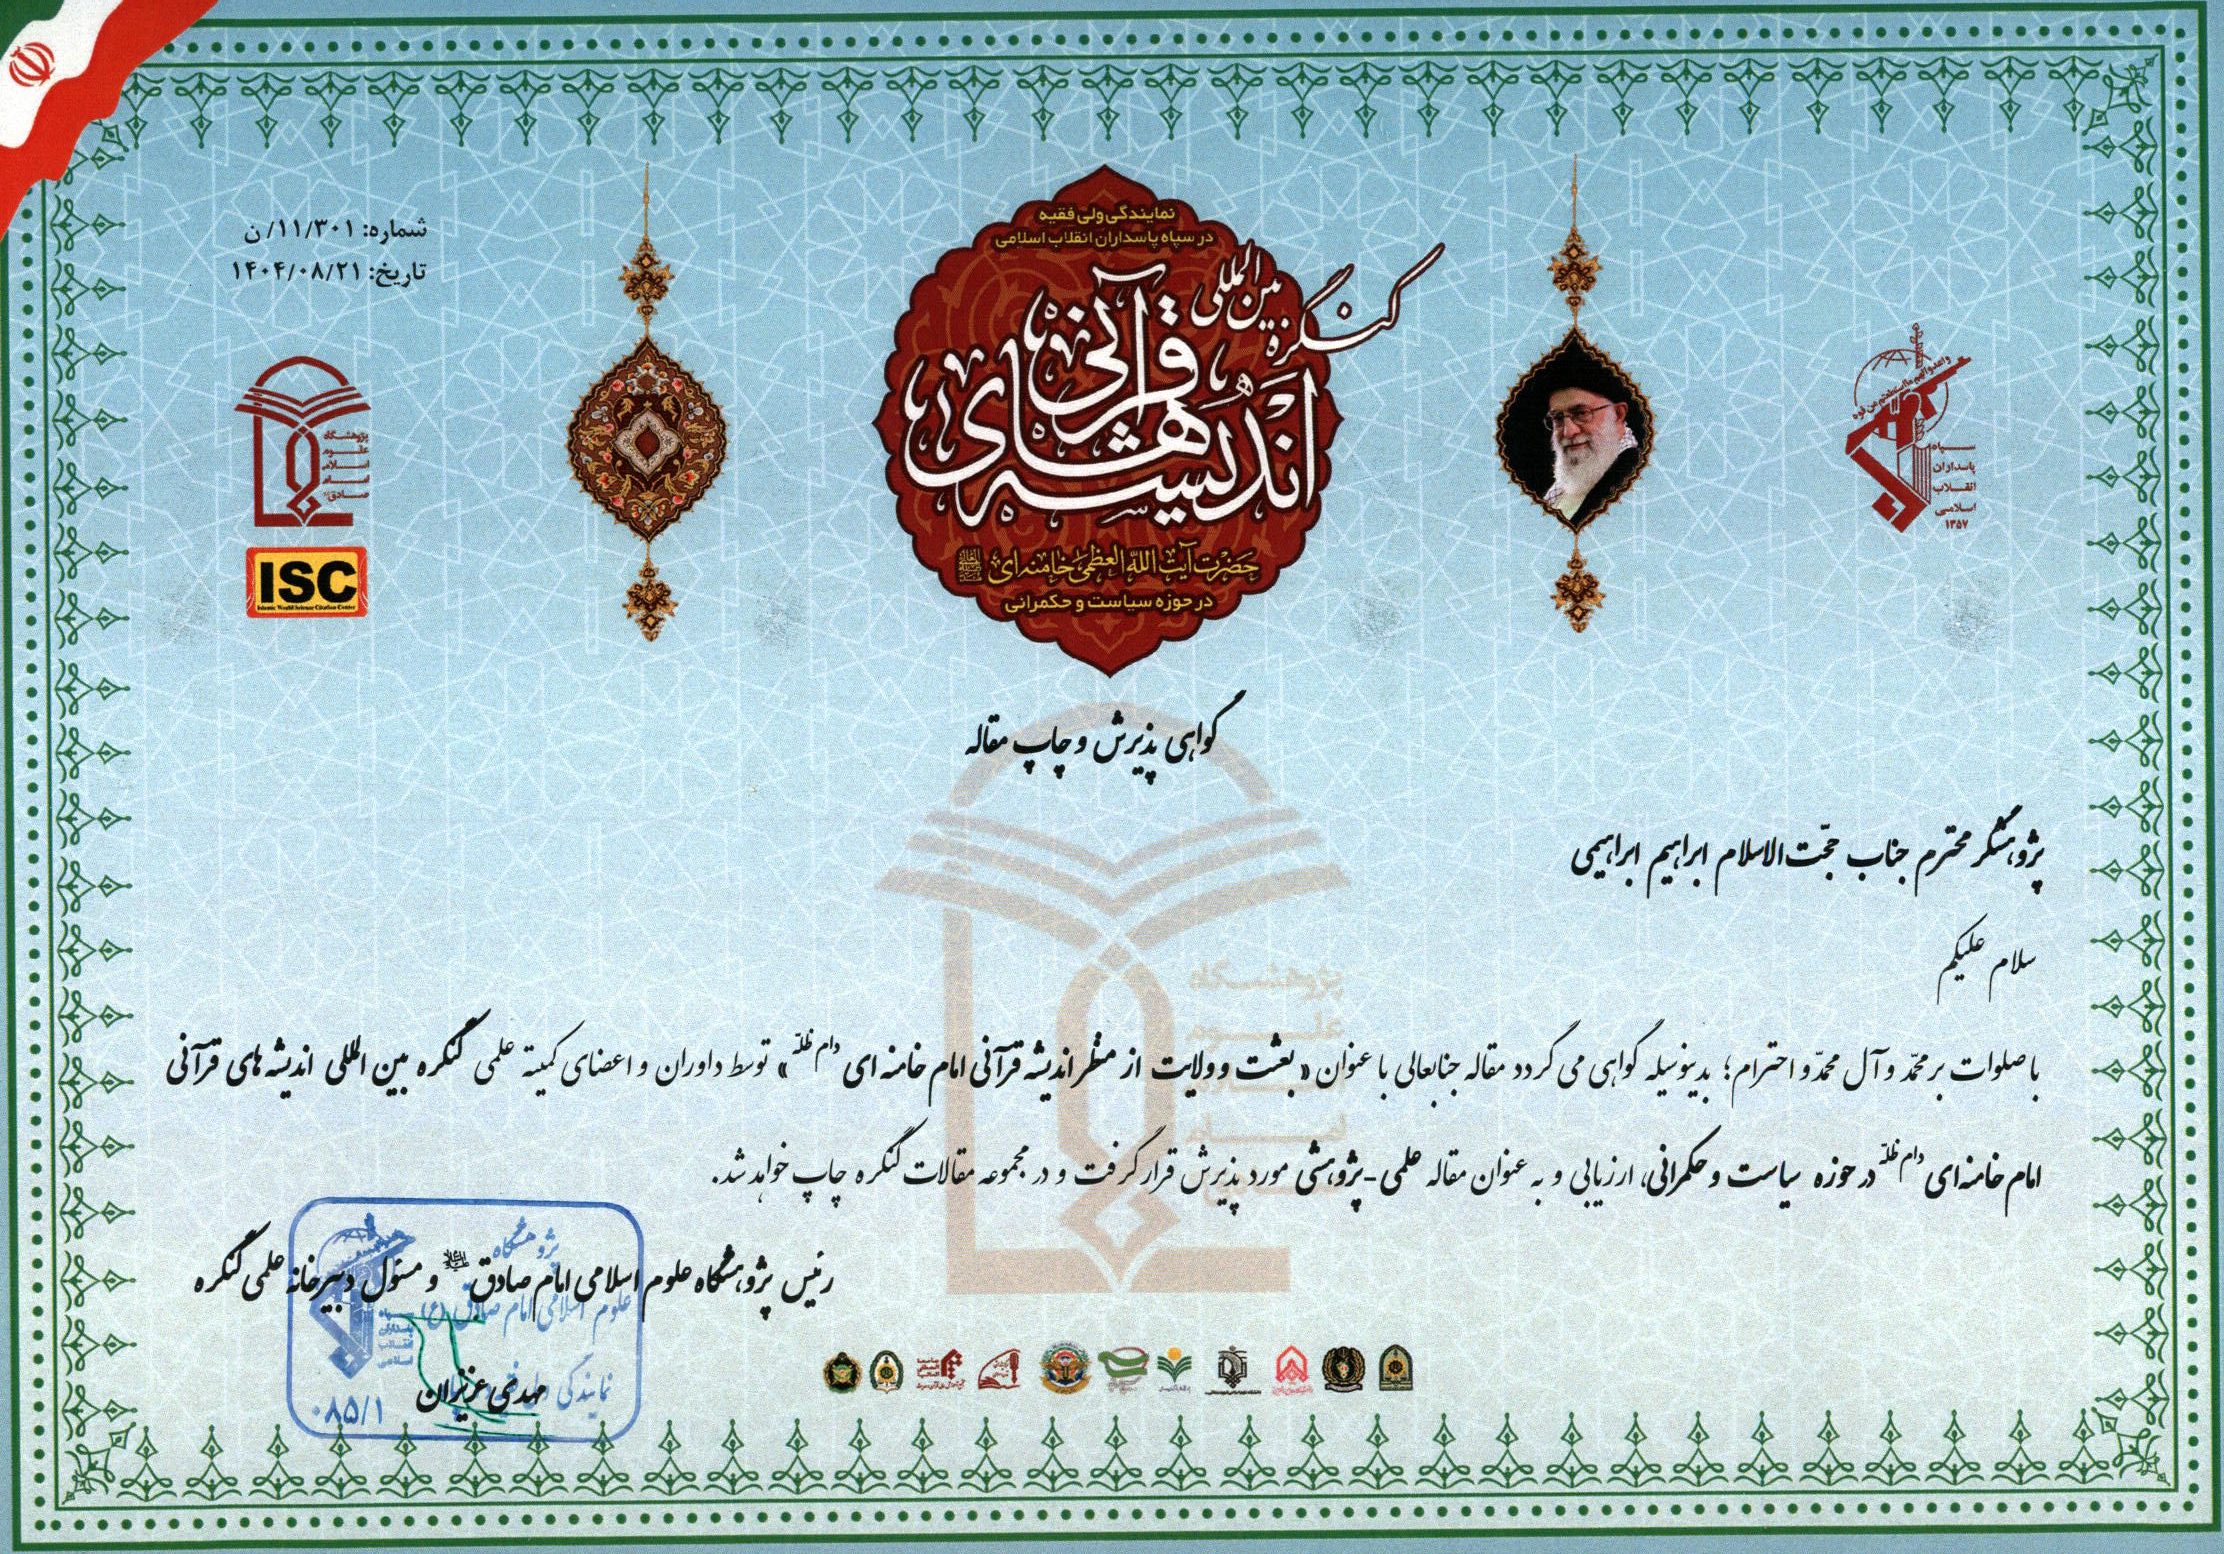 شماره: ۱۱/۳۰۱/ن
تاریخ: ۱۴۰۴/۰۸/۲۱
نمایندگی ولی فقیه
در سپاه پاسداران انقلاب اسلامی
کنگره بین المللی
اندیشه های قرآنی
حضرت آیت الله العظمی خامنه ای
در حوزه سیاست و حکمرانی
سپاه
پاسداران
انقلاب
اسلامی
۱۳۵۷
پژوهشگاه
علوم
اسلامی
امام
صادق
ISC
Islamic World Science Citation Center
گواهی پذیرش و چاپ مقاله
پژوهشگر محترم جناب حجّت الاسلام ابراهیم ابراهیمی
سلام علیکم
با صلوات بر محمّد و آل محمّد و احترام؛ بدینوسیله گواهی می گردد مقاله جنابعالی با عنوان « بعثت و ولایت از منظر اندیشه قرآنی امام خامنه ای دام ظلّه » توسط داوران و اعضای کمیته علمی کنگره بین المللی اندیشه های قرآنی
امام خامنه ای دام ظلّه در حوزه سیاست و حکمرانی، ارزیابی و به عنوان مقاله علمی-پژوهشی مورد پذیرش قرار گرفت و در مجموعه مقالات کنگره چاپ خواهد شد.
رئیس پژوهشگاه علوم اسلامی امام صادق و مسئول دبیرخانه علمی کنگره
مهدی عزیزان
پژوهشگاه
علوم اسلامی امام صادق (ع)
نمایندگی
۰۸۵/۱